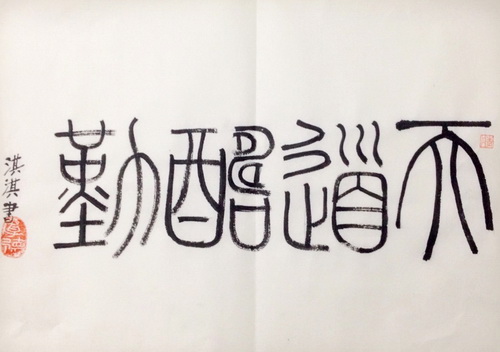 天道酬勤
淇淇書